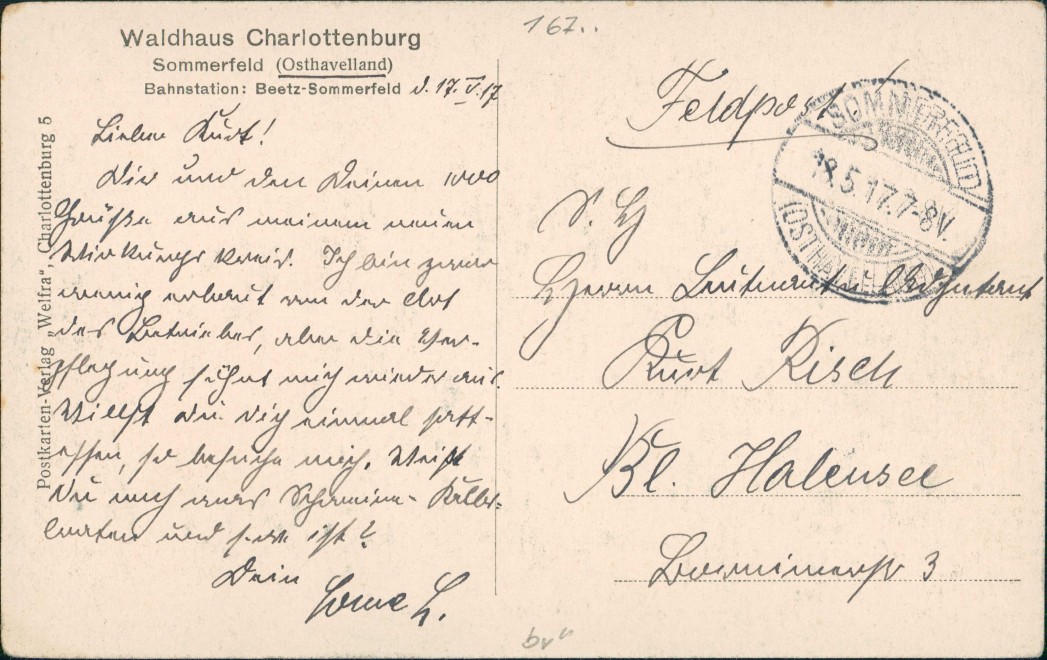 167..
Waldhaus Charlottenburg
Sommerfeld (Osthavelland)
Bahnstation: Beetz-Sommerfeld d. 17. V. 17
Lieber Kurt!
Dir und den Deinen 1000
Grüße aus meinem neuen
Wirkungskreis. Ich bin zwar
wenig erbaut von der Art
des Betriebes, aber die Ver-
pflegung söhnt mich wieder aus
Willst du Dich einmal satt-
essen, so besuche mich. Weißt
Du noch was Schweine- Kalbs-
braten und s.w. ist?
Dein
Postkarten-Verlag „Welfra“, Charlottenburg 5
Feldpost
SOMMERFELD
18.5.17.7-8V.
(OSTHAVELLAND)
S. H
Herrn Leutnant Adjutant
Kurt Risch
Bl. Halensee
3